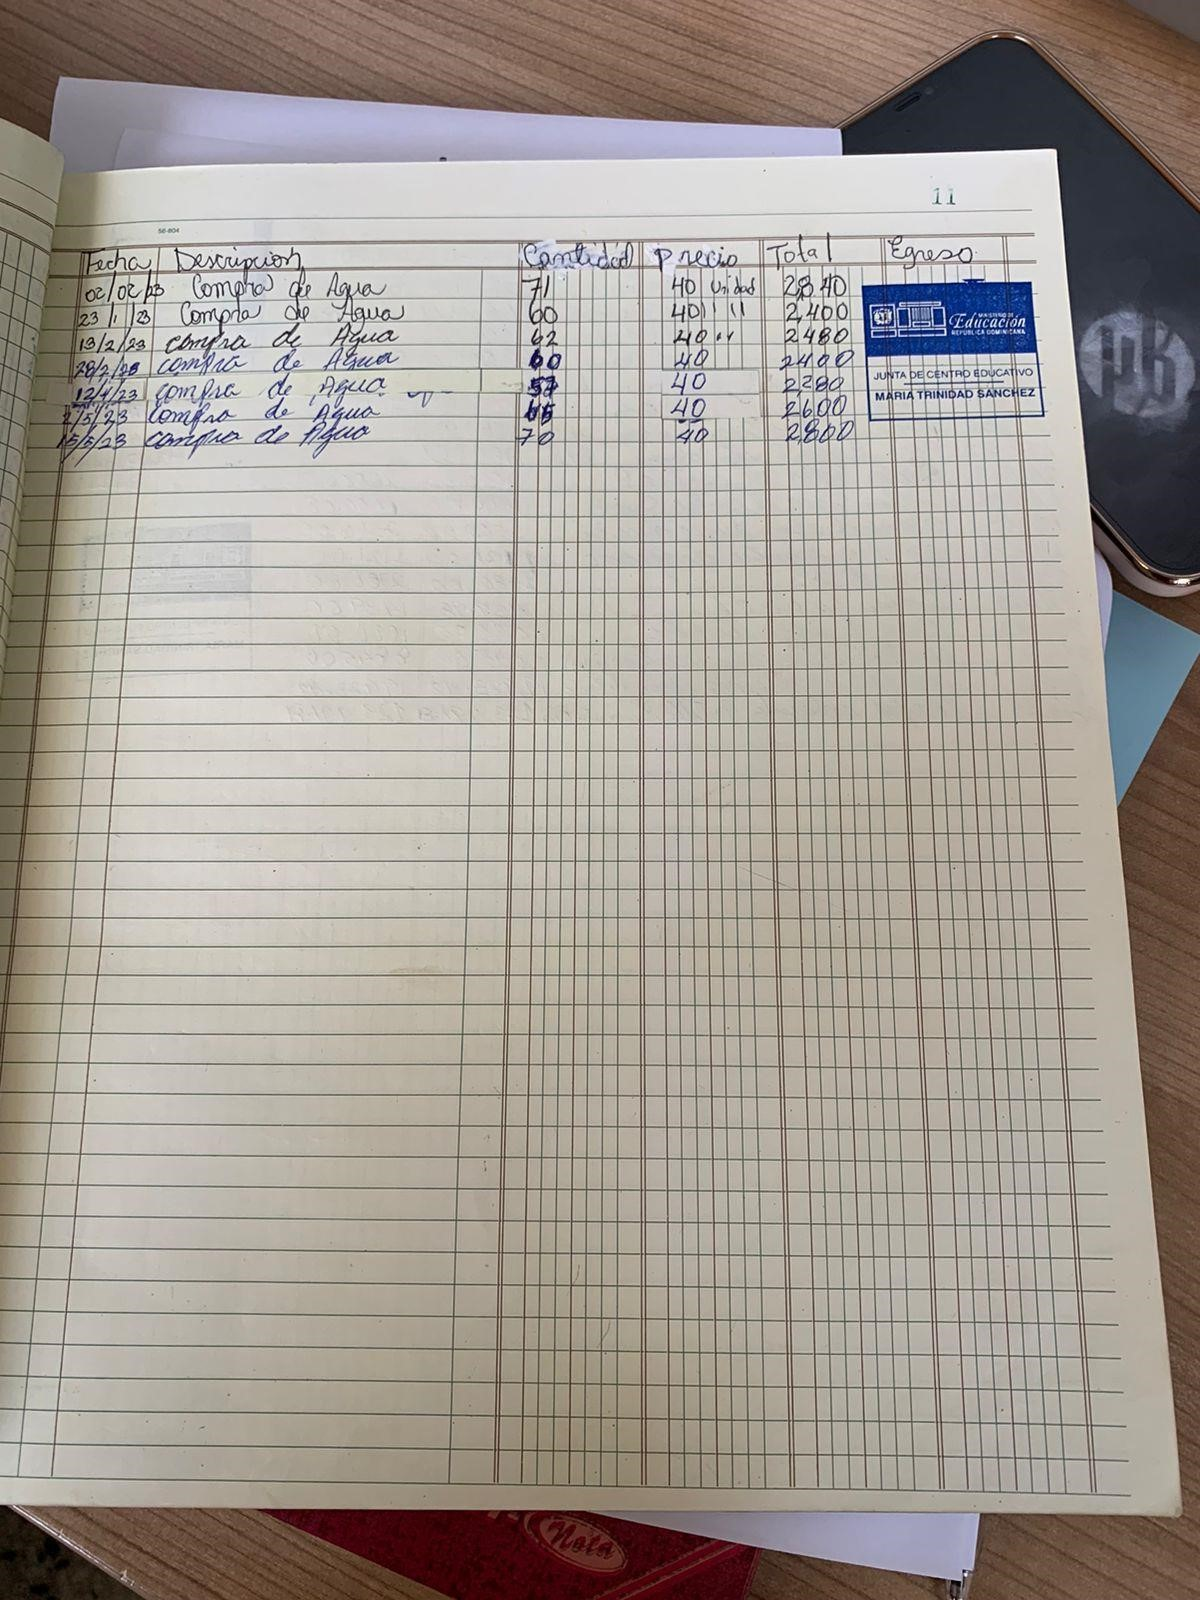 11
56-804
Fecha Descripción Cantidad Precio Total Egreso
02/02/23 Compra de Agua 71 40 Unidad 2,840
23/1/23 Compra de Agua 60 40 " " 2,400
13/2/23 compra de Agua 62 40 " 2480
28/2/23 compra de Agua 60 40 2400
12/4/23 compra de Agua 57 40 2280
2/5/23 compra de Agua 65 40 2600
15/5/23 compra de Agua 70 40 2,800
MINISTERIO DE
Educación
REPÚBLICA DOMINICANA
JUNTA DE CENTRO EDUCATIVO
MARIA TRINIDAD SÁNCHEZ
Nota